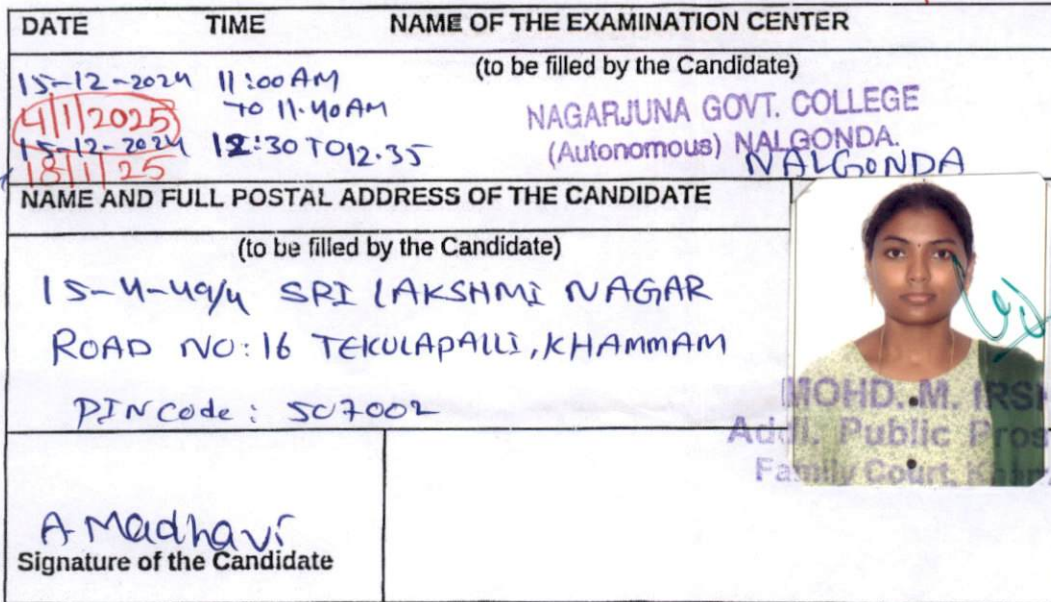 DATE TIME NAME OF THE EXAMINATION CENTER
(to be filled by the Candidate)
15-12-2024 11:00 AM
TO 11.40AM
4/1/2025
15-12-2024 12:30 TO 12.35
18/1/25
NAGARJUNA GOVT. COLLEGE
(Autonomous) NALGONDA.
NALGONDA
NAME AND FULL POSTAL ADDRESS OF THE CANDIDATE
(to be filled by the Candidate)
15-4-49/4 SRI LAKSHMI NAGAR
ROAD NO: 16 TEKULAPALLI, KHAMMAM
PINCode: 507002
MOHD. M. IRS
Addl. Public Pros
Family Court, Kham
A Madhavi
Signature of the Candidate